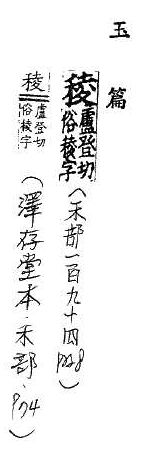 玉篇
稜盧登切俗棱字(禾部一百九十四P228)
稜盧登切俗棱字(澤存堂本.禾部、P74)